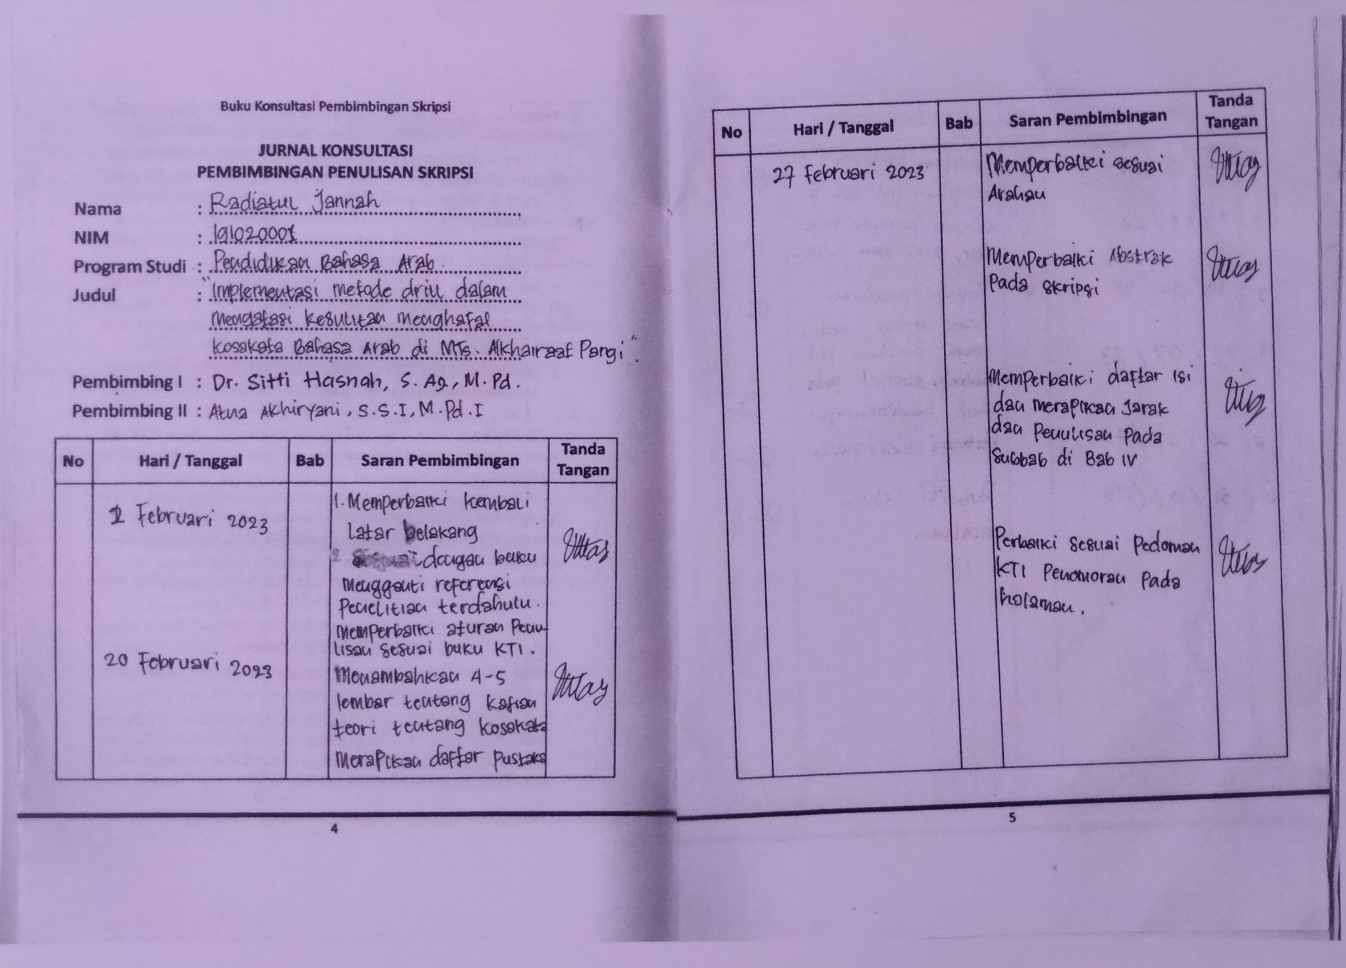 Buku Konsultasi Pembimbingan Skripsi
JURNAL KONSULTASI
PEMBIMBINGAN PENULISAN SKRIPSI
Nama : Radiatul Jannah
NIM : 191020001
Program Studi : Pendidikan Bahasa Arab
Judul : "Implementasi metode drill dalam
mengatasi kesulitan menghafal
kosakata Bahasa Arab di MTs. Alkhairaat Pangi".
Pembimbing I : Dr. Sitti Hasnah, S. Ag., M. Pd.
Pembimbing II : Atna Akhiryani, S.S.I, M.Pd.I
No Hari / Tanggal Bab Saran Pembimbingan Tanda Tangan
Februari 2023 1. Memperbaiki kembali
latar belakang
2. dengan buku
mengganti referensi
Penelitian terdahulu.
memperbaiki aturan Penu
lisan sesuai buku KTI.
20 Februari 2023 Menambahkan 4-5
lembar tentang kajian
teori tentang kosakata
Merapikan daftar Pustaka
4
No Hari / Tanggal Bab Saran Pembimbingan Tanda Tangan
27 Februari 2023 Memperbaiki sesuai
Arahan
Memperbaiki Abstrak
Pada skripsi
Memperbaiki daftar isi
dan merapikan Jarak
dan Penulisan Pada
Subbab di Bab IV
Perbaiki sesuai Pedoman
KTI Penomoran Pada
halaman.
5